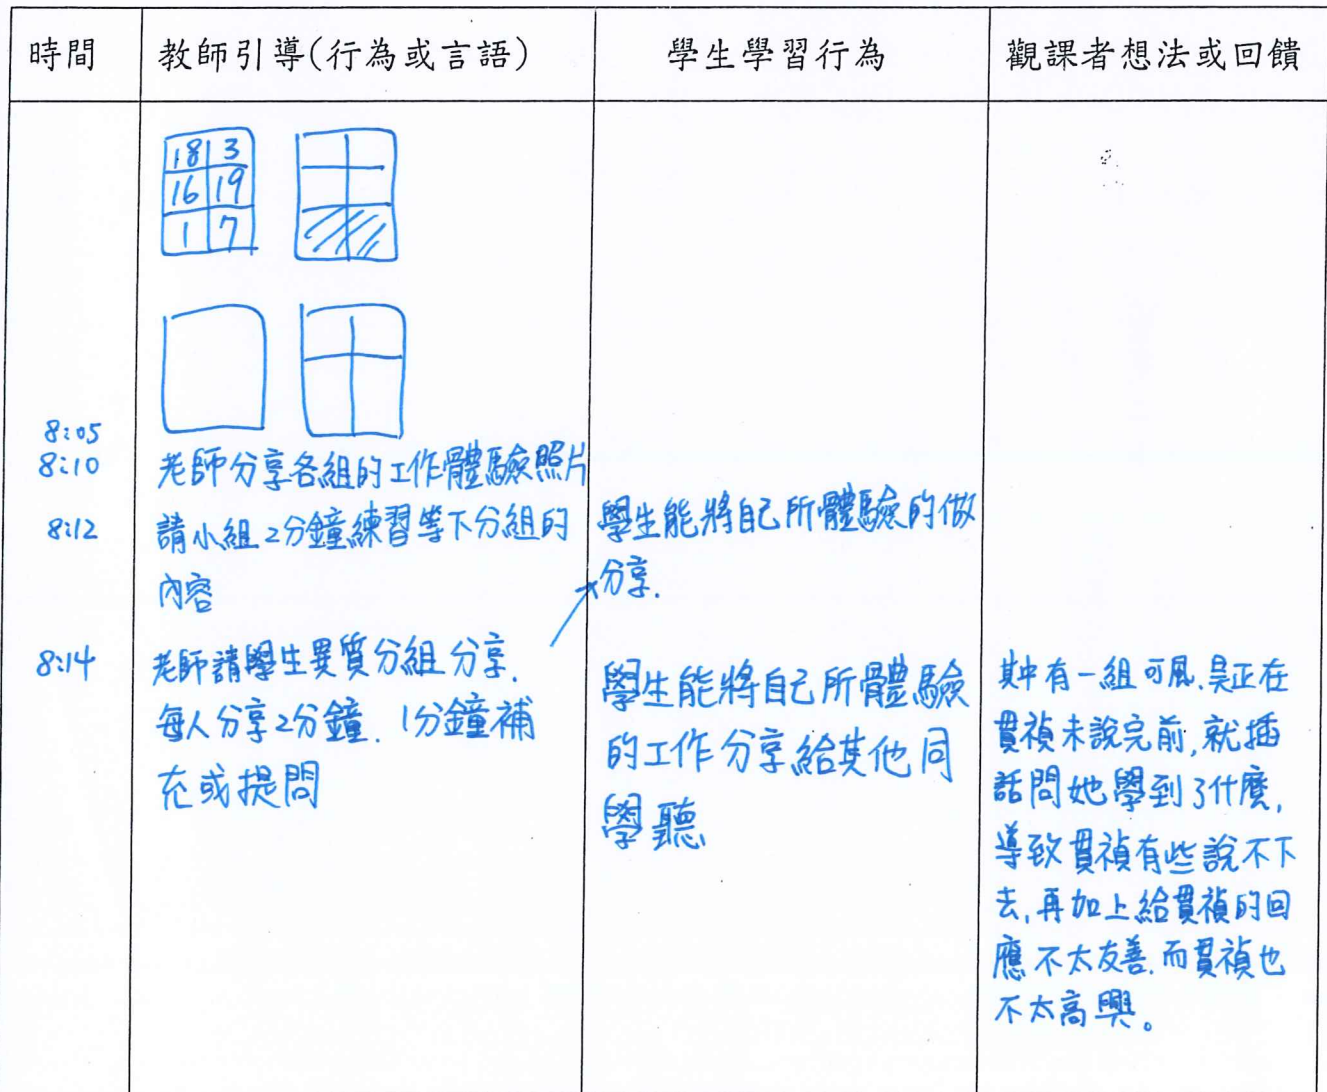 時間 教師引導(行為或言語) 學生學習行為 觀課者想法或回饋
18 3
16 19
1 7
8:05
8:10 老師分享各組的工作體驗照片
8:12 請小組2分鐘練習等下分組的
內容
學生能將自己所體驗的做
分享.
8:14 老師請學生異質分組分享.
每人分享2分鐘. 1分鐘補
充或提問
學生能將自己所體驗
的工作分享給其他同
學聽
其中有一組可風.昊正在
貫禎未說完前,就插
話問她學到了什麼,
導致貫禎有些說不下
去,再加上給貫禎的回
應不太友善.而貫禎也
不太高興。